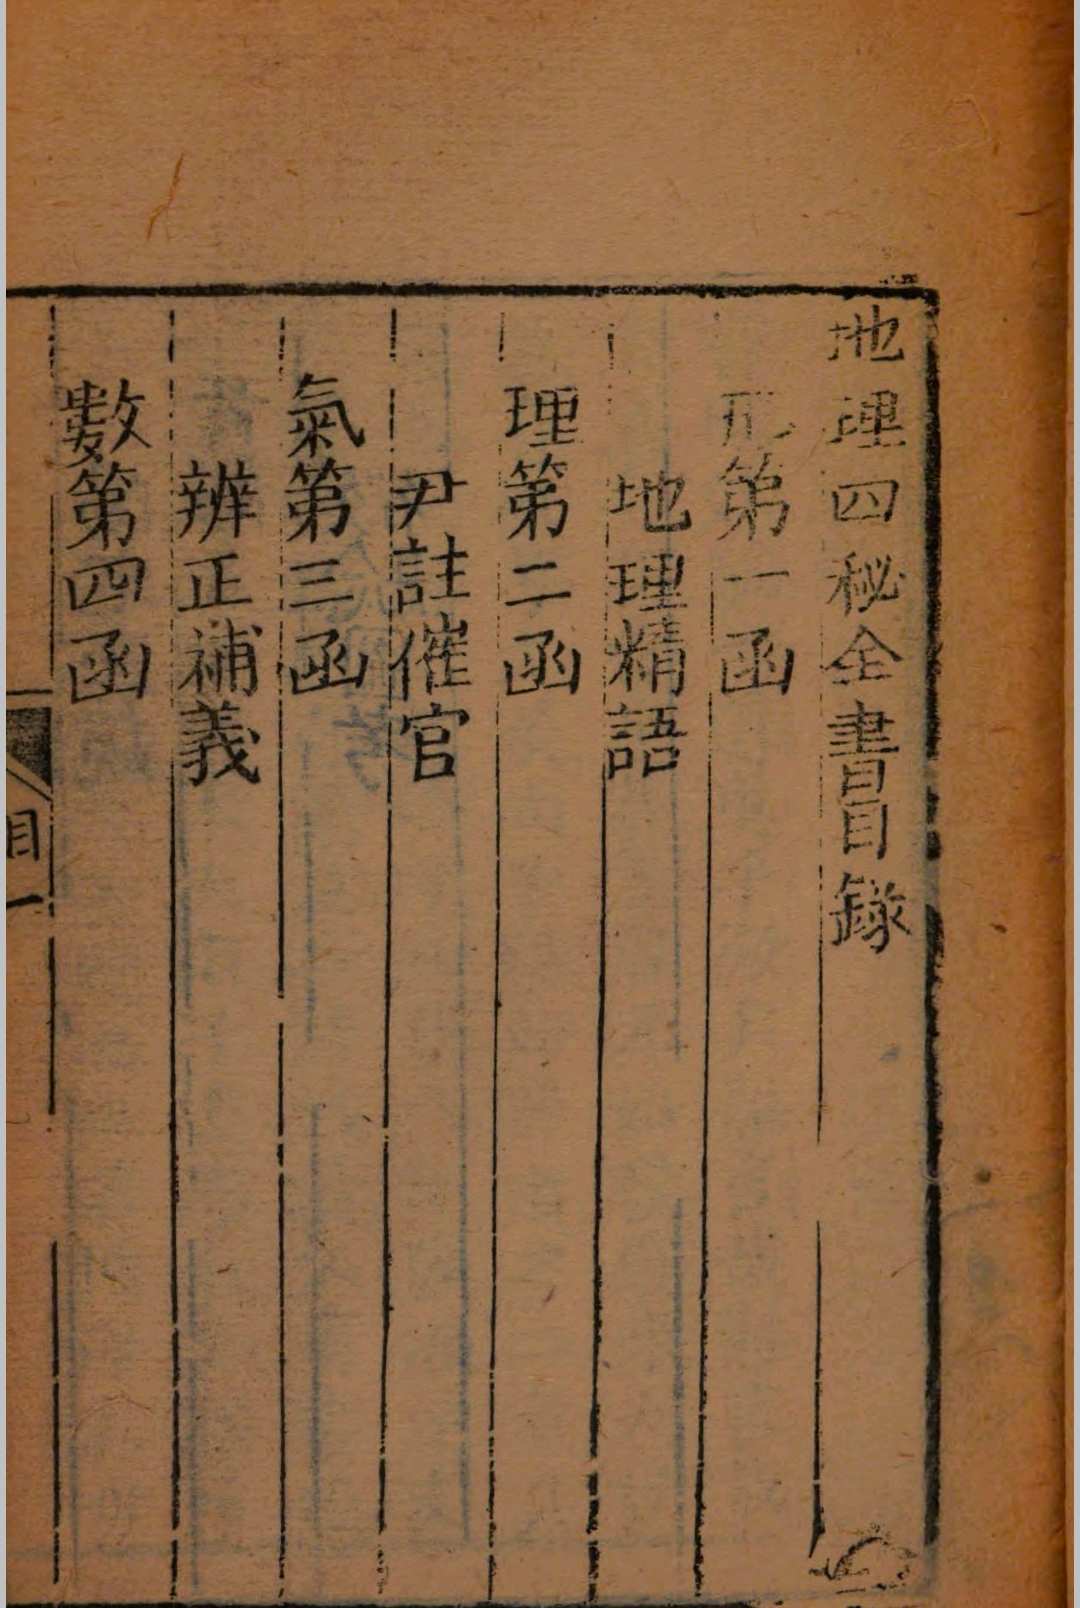 地理四秘全書目錄
形第一函
地理精語
理第二函
尹註催官
氣第三函
辨正補義
數第四函
目一